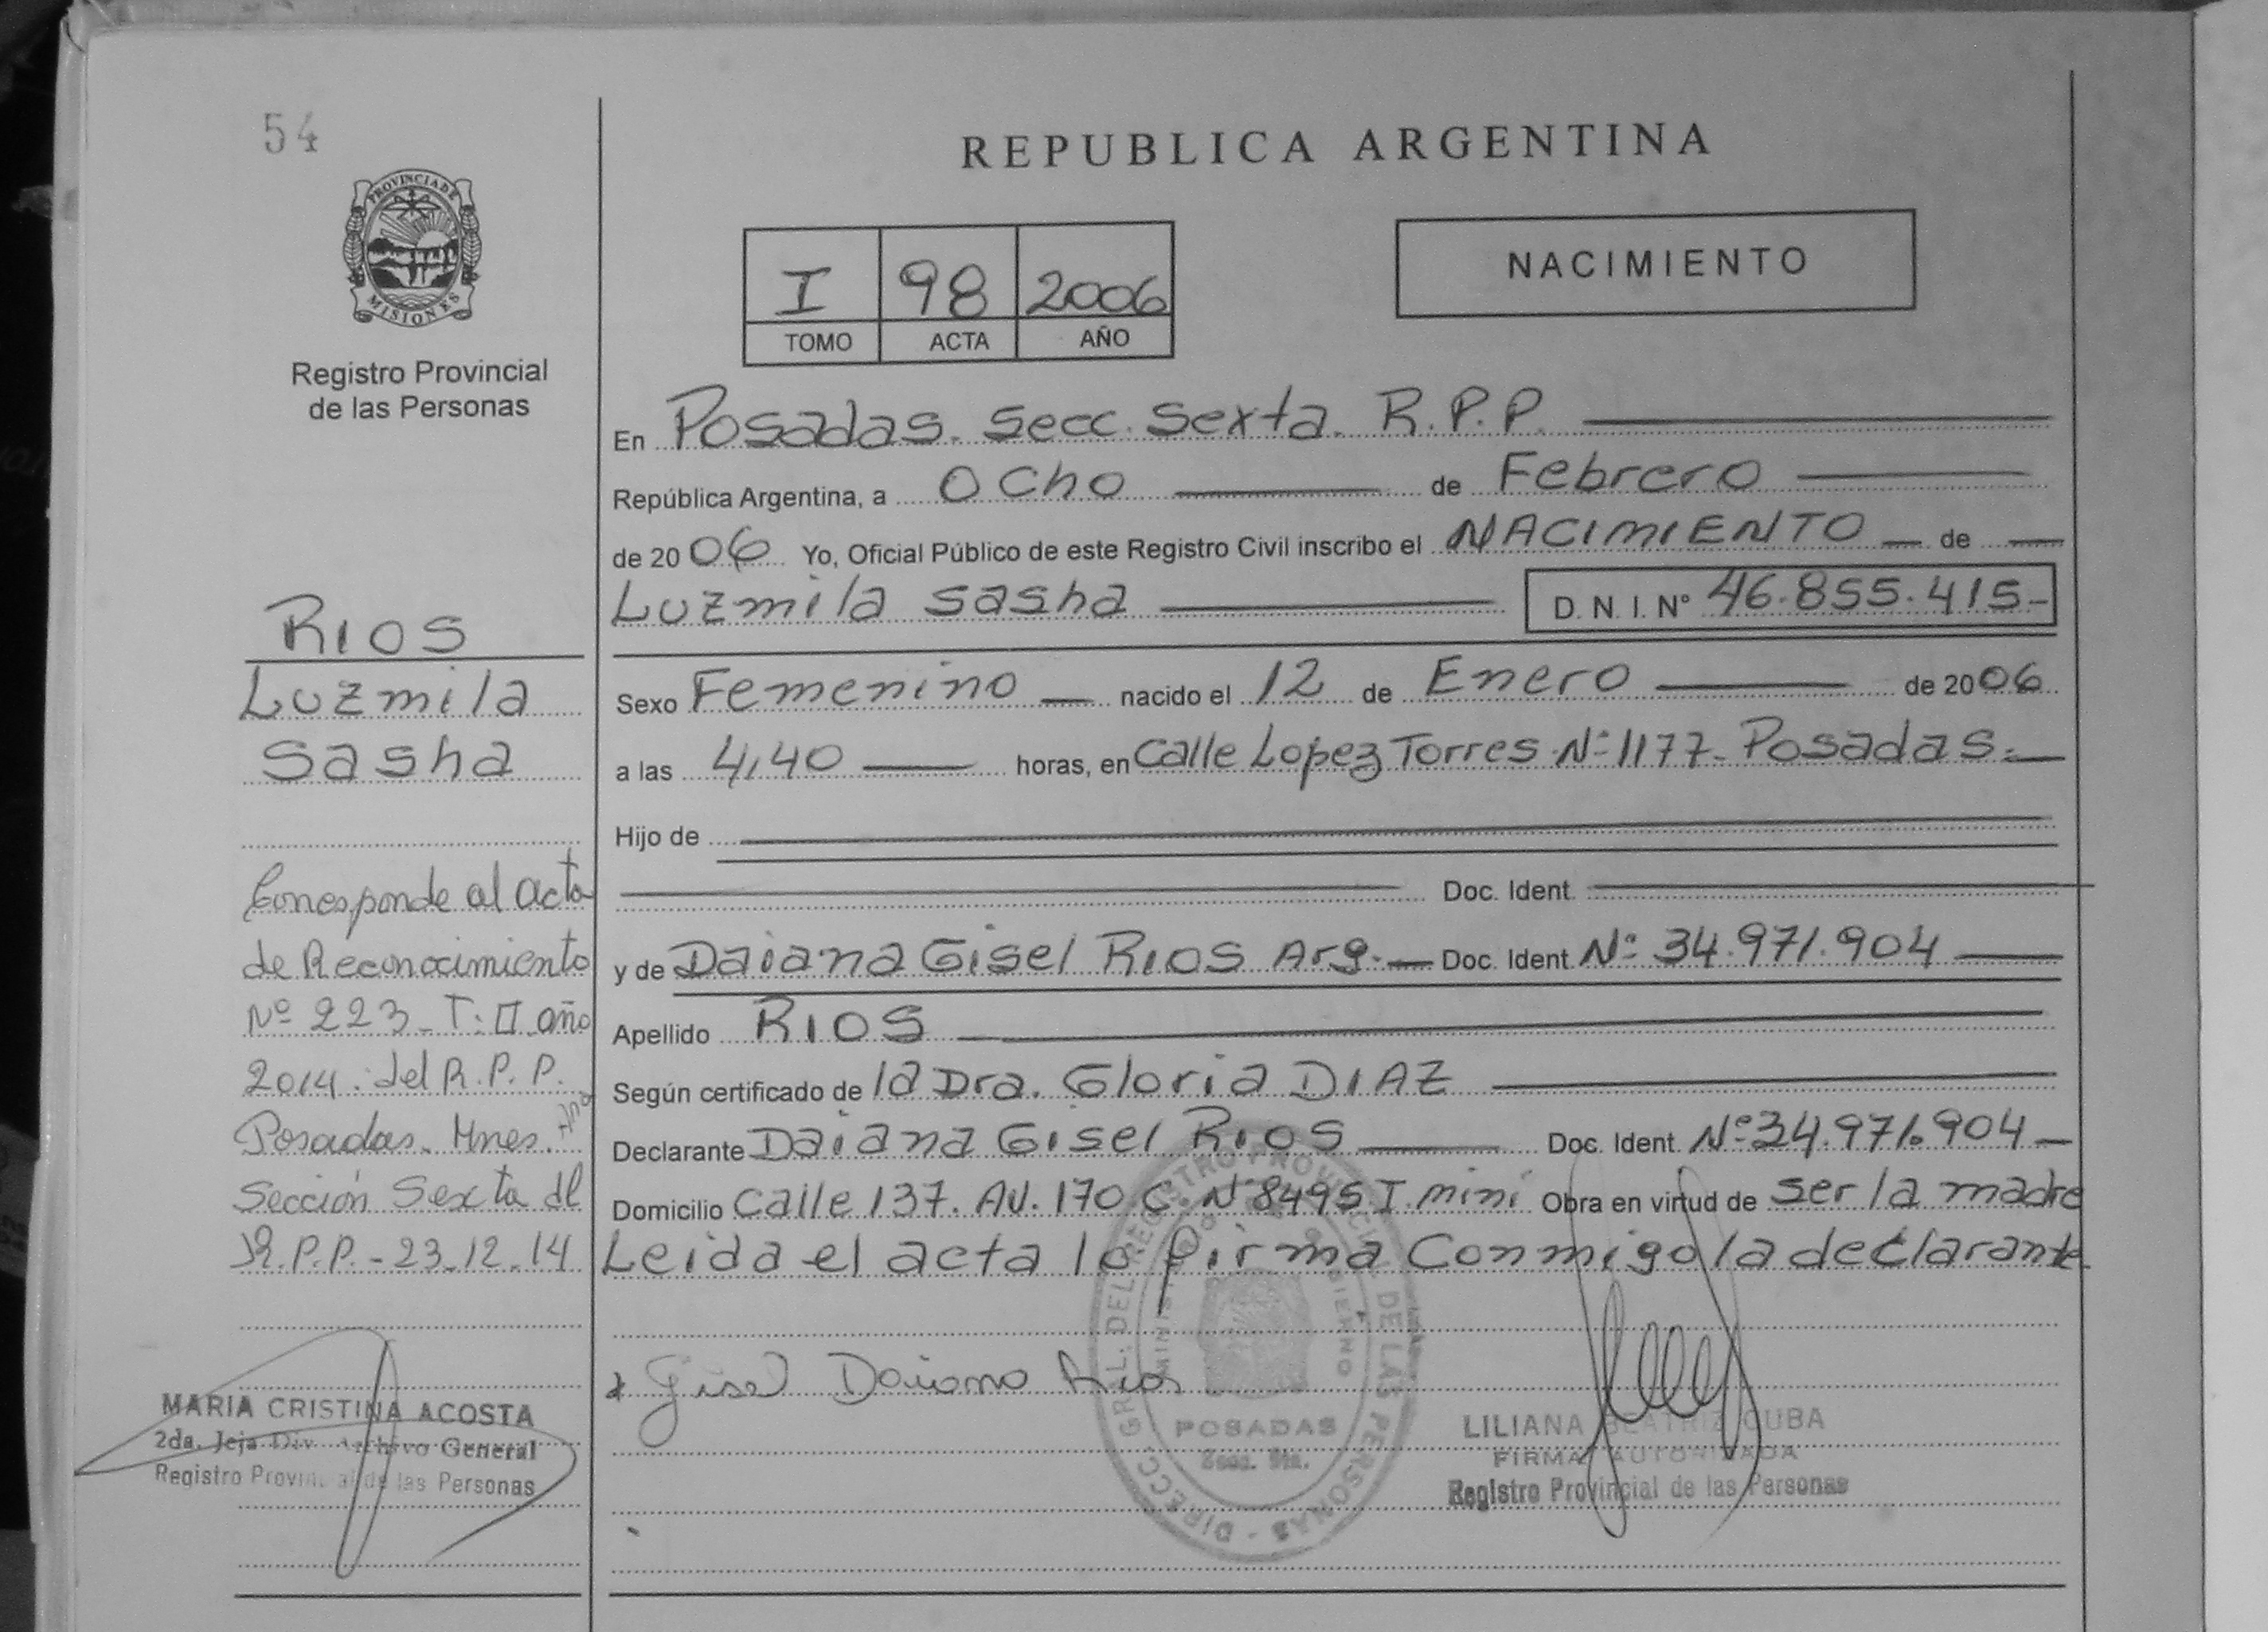 54
PROVINCIA DE
MISIONES
Registro Provincial
de las Personas
RIOS
Luzmila
Sasha
Corresponde al acta
de Reconocimiento
Nº 223 - T: II año
2014. del R.P.P.
Posadas. Mnes.
Sección Sexta del
R.P.P. - 23.12.14
MARIA CRISTINA ACOSTA
2da. Jefa Div. Archivo General
Registro Provincial de las Personas
REPUBLICA ARGENTINA
I 98 2006
TOMO ACTA AÑO
NACIMIENTO
En Posadas. Secc. Sexta. R.P.P.
República Argentina, a Ocho de Febrero
de 2006 Yo, Oficial Público de este Registro Civil inscribo el NACIMIENTO de
Luzmila Sasha D. N. I. Nº 46.855.415-
Sexo Femenino nacido el 12 de Enero de 2006
a las 4,40 horas, en Calle Lopez Torres Nº 1177- Posadas.-
Hijo de
Doc. Ident.
y de Daiana Gisel RIOS Arg. Doc. Ident. Nº 34.971.904
Apellido RIOS
Según certificado de la Dra. Gloria DIAZ
Declarante Daiana Gisel RIOS Doc. Ident. Nº 34.971.904
Domicilio Calle 137. AV. 170 C. Nº 8495 I. mini Obra en virtud de ser la madre
Leida el acta la firma Conmigo la declarante
Gisel Daiana Rios
DIRECC. GRAL. DEL REGISTRO PROVINCIAL DE LAS PERSONAS
POSADAS
Secc. 6ta.
LILIANA BEATRIZ CUBA
FIRMA AUTORIZADA
Registro Provincial de las Personas